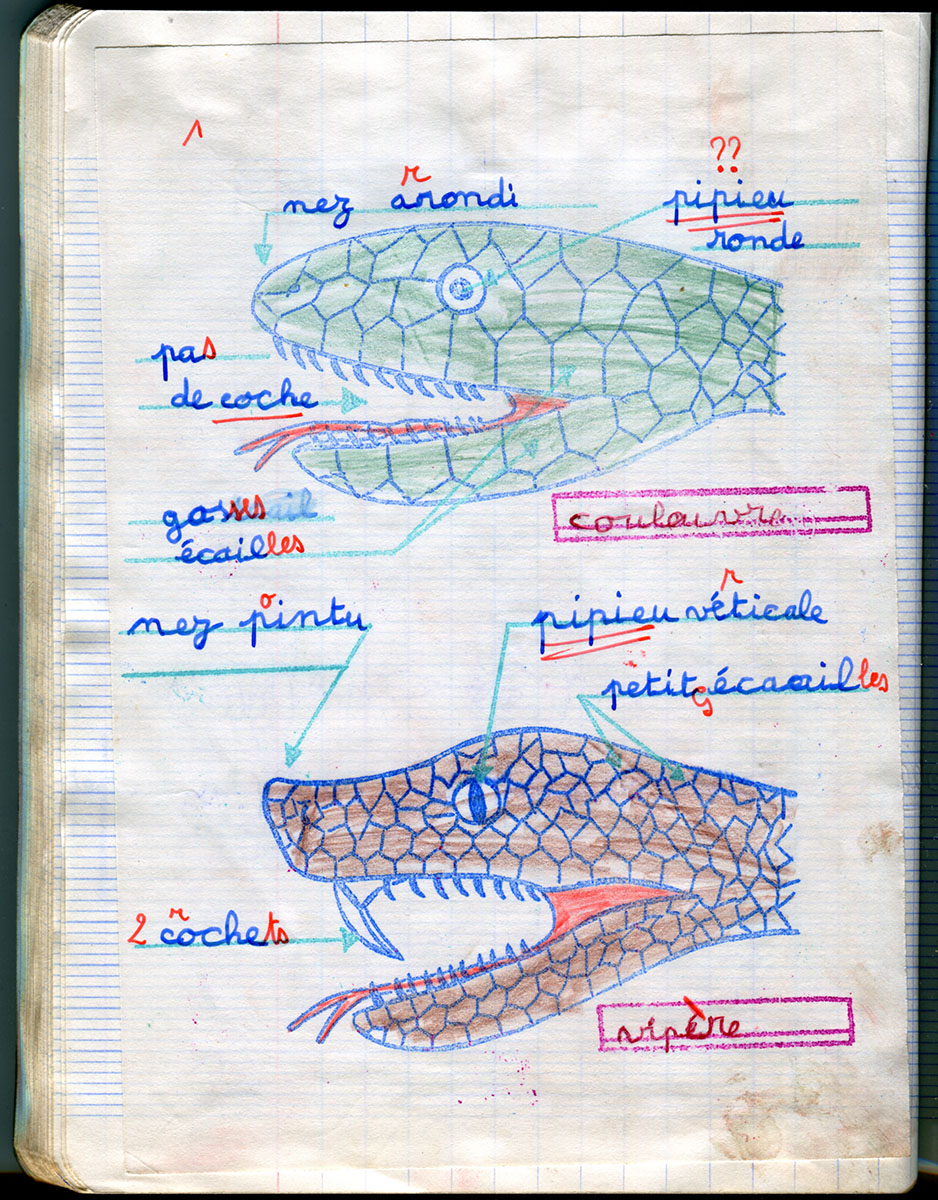 ??
r
nez arondi
pipieu
ronde
pas
de coche
gasses
écailles
couleuvre
o
nez pintu
r
pipieu véticale
petits écaailles
r
2 cochets
vipère